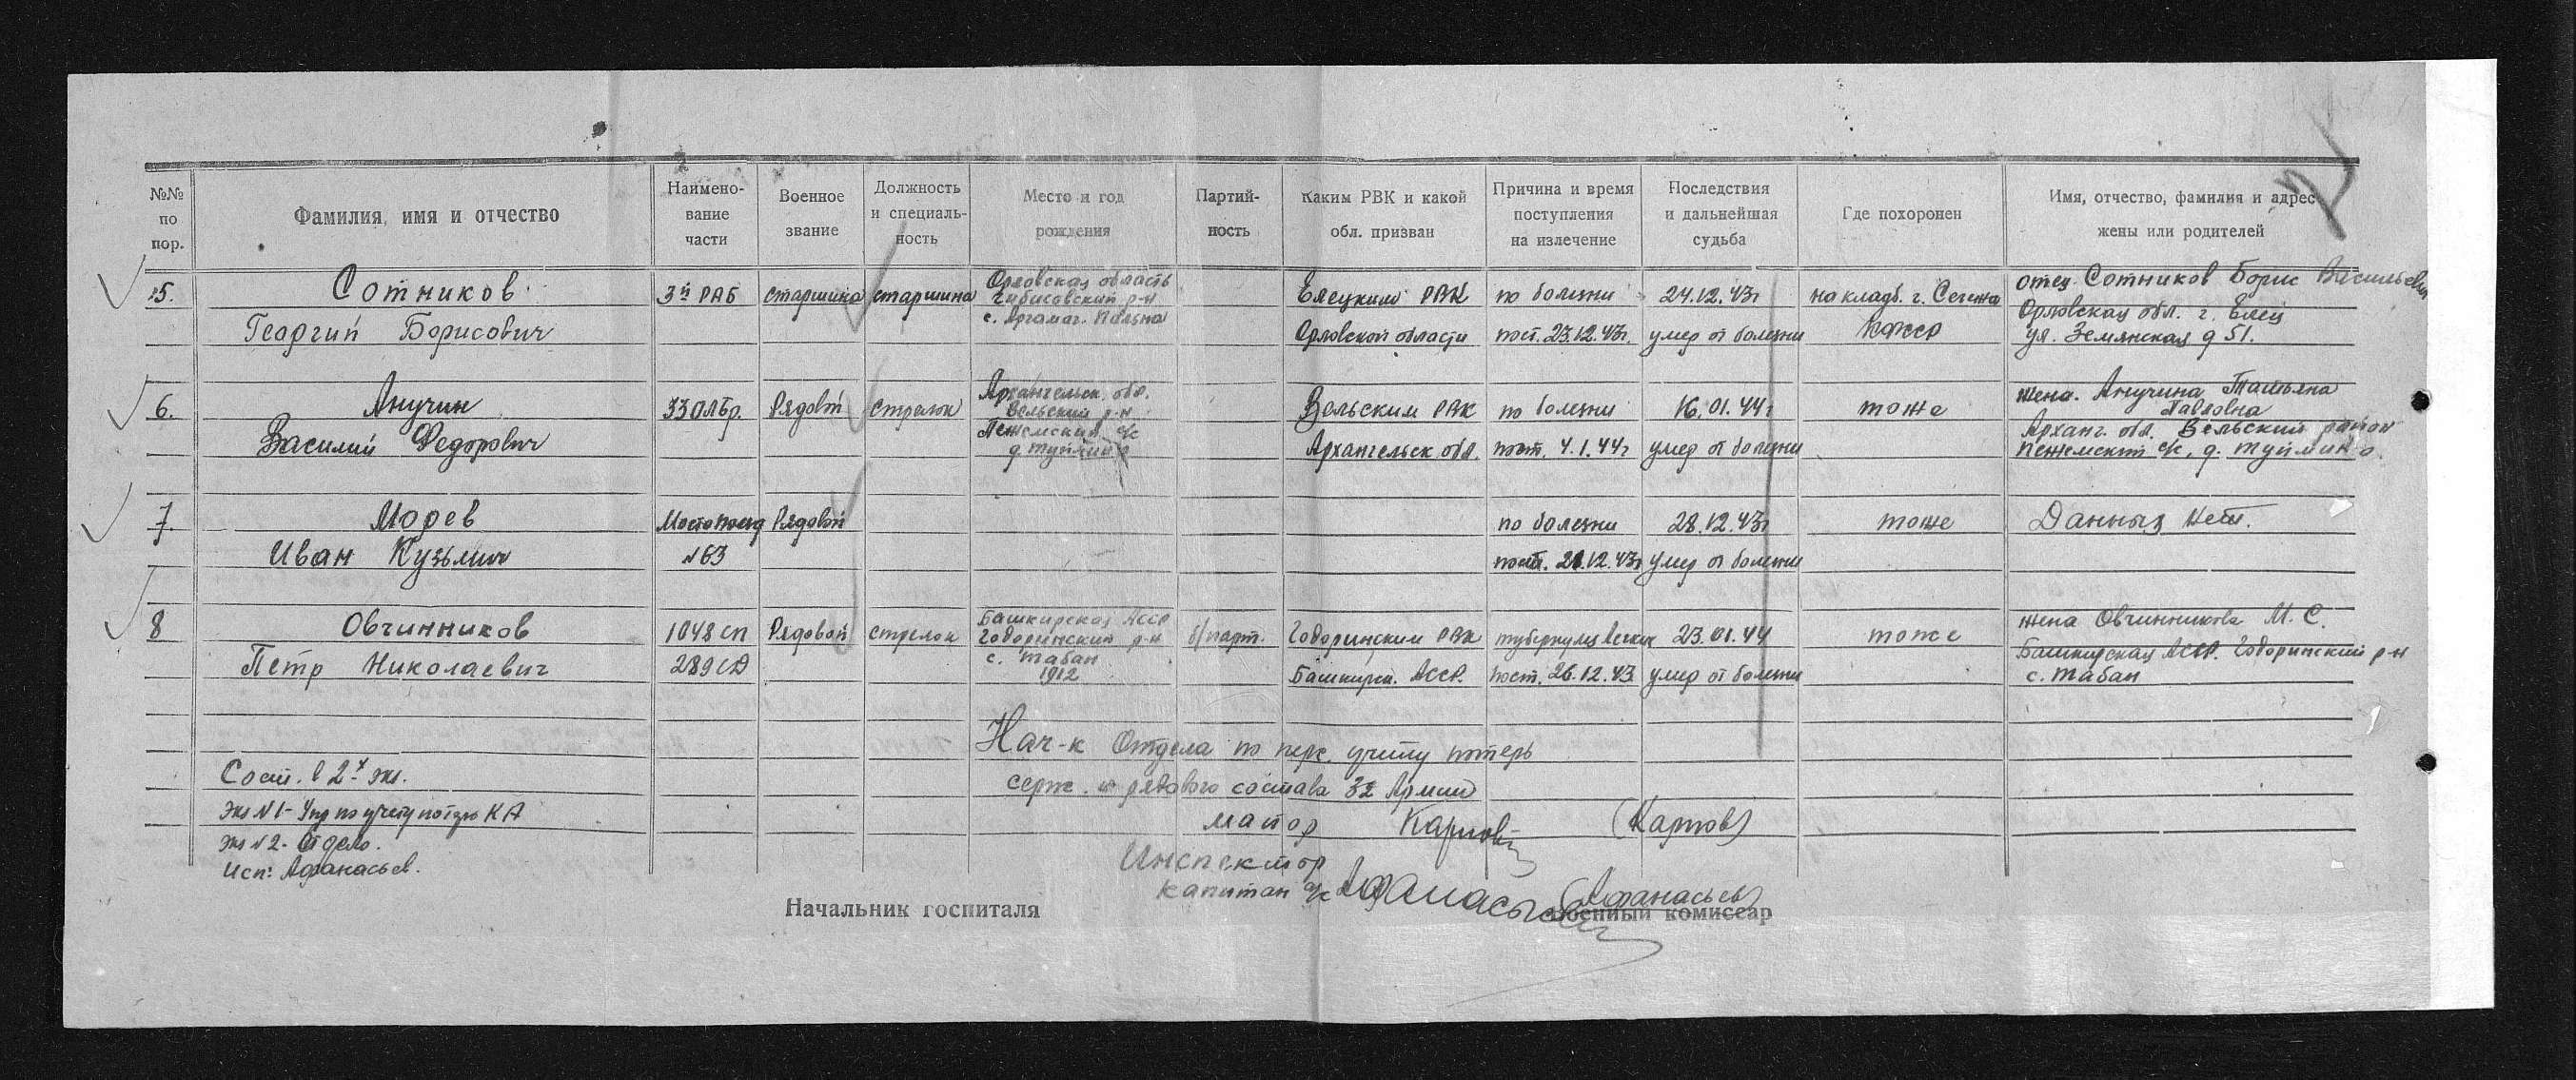 2
№№ по пор.
Фамилия, имя и отчество
Наименование части
Военное звание
Должность и специальность
Место и год рождения
Партийность
Каким РВК и какой обл. призван
Причина и время поступления на излечение
Последствия и дальнейшая судьба
Где похоронен
Имя, отчество, фамилия и адрес жены или родителей
5.
Сотников
Георгий Борисович
3й РАБ
старшина
старшина
Орловская область
Чибисовский р-н
с. Аргамач. Пальна
Елецким РВК
Орловской области
по болезни
пост. 23.12.43г.
24.12.43г
умер от болезни
на кладб. г. Сегежа
КФССР
отец Сотников Борис Васильевич
Орловская обл. г. Елец
ул. Землянская д 51.
6.
Анучин
Василий Федорович
33 ОЛБр.
Рядовой
стрелок
Архангельск. обл.
Вельский р-н
Пежемский с/с
Вельским РВК
Архангельск обл.
по болезни
пост. 4.1.44г
16.01.44г
умер от болезни
тоже
жена. Анучина Татьяна
Павловна
Арханг. обл. Вельский район
Пежемский с/с, д.
7.
Морев
Иван Кузьмич
Мостопоезд
№63
Рядовой
по болезни
пост. 21.12.43г
28.12.43г
умер от болезни
тоже
Данных нет.
8
Овчинников
Петр Николаевич
1048 сп
289 СД
Рядовой
стрелок
Башкирская АССР
с. Табан
1912
б/парт.
Башкирск. АССР.
туберкулез легких
пост. 26.12.43
23.01.44
умер от болезни
тоже
жена Овчинникова М. С.
Башкирская АССР. р-н
с. Табан
Нач-к Отдела по перс. учету потерь
серж. и рядового состава 32 Армии
майор Карпов (Карпов)
Инспектор
капитан а/с Афанасьев (Афанасьев)
Сост. в 2х экз.
Экз №1 - Упр по учету потерь КА
Экз №2 - Отдело.
Исп: Афанасьев.
Начальник госпиталя
Военный комиссар